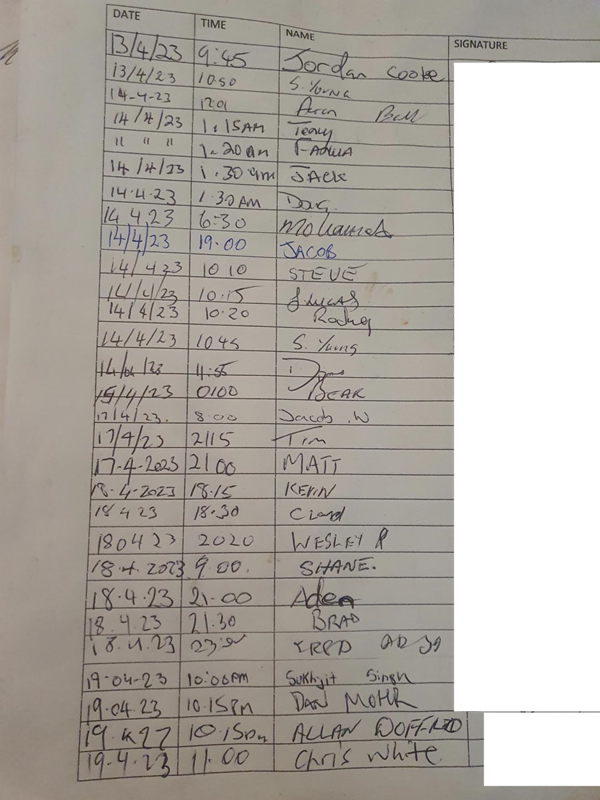 DATE TIME NAME SIGNATURE
13/4/23 9:45 Jordan Cooke
13/4/23 10:50 S. YOUNG
14-4-23 1201 Bell
14/4/23 1.15AM Terry
" " " 1.20am
14/4/23 1.30am JACK
14.4.23 1.30AM Doug
14.4.23 6:30 Mohamed
14/4/23 19.00 JACOB
14/4/23 10 10 STEVE
14/4/23 10.15 LUCAS
14/4/23 10.20 Rodney
14/4/23 1045 S. Young
14/4/23
15/4/23 0100 BEAR
17/4/23. 8.00 Jacob .W
17/4/23 2115 Tim
17-4-2023 2100 MATT
18-4-2023 18.15 KEVIN
18 4 23 18.30
18 04 23 2020 WESLEY P
18.4.2023 9 00. SHANE.
18.4.23 21.00 Aden
18.4.23 21.30 BRAD
18.4.23
19-04-23 10:00PM Sukhjit Singh
19.04.23 10.15PM DAN MOHR
10.15Pm ALLAN
19.4.23 11.00 Chris White.